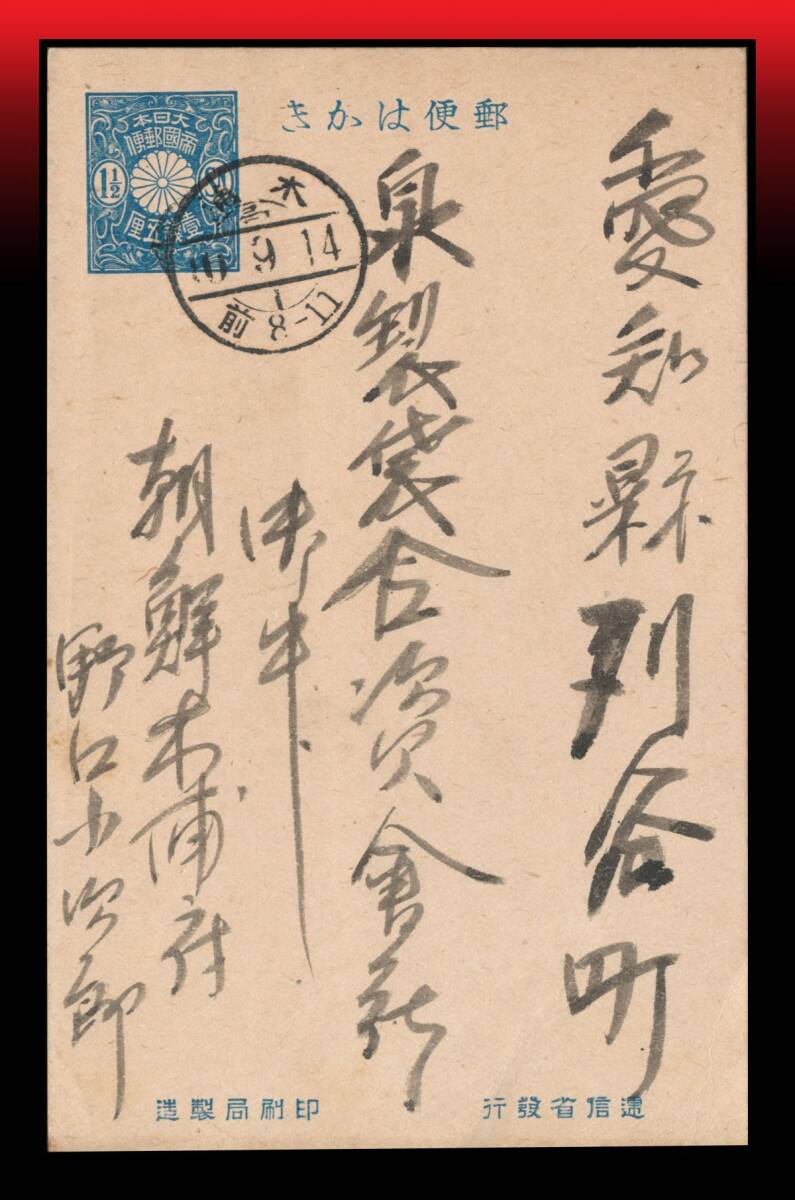 郵便はかき
大日本
帝國郵便
1½
壹銭五厘
木
9 14
前 8-11
愛知縣刈谷町
泉製袋合資會社
御中
朝鮮木浦府
野口小次郎
逓信省發行
印刷局製造